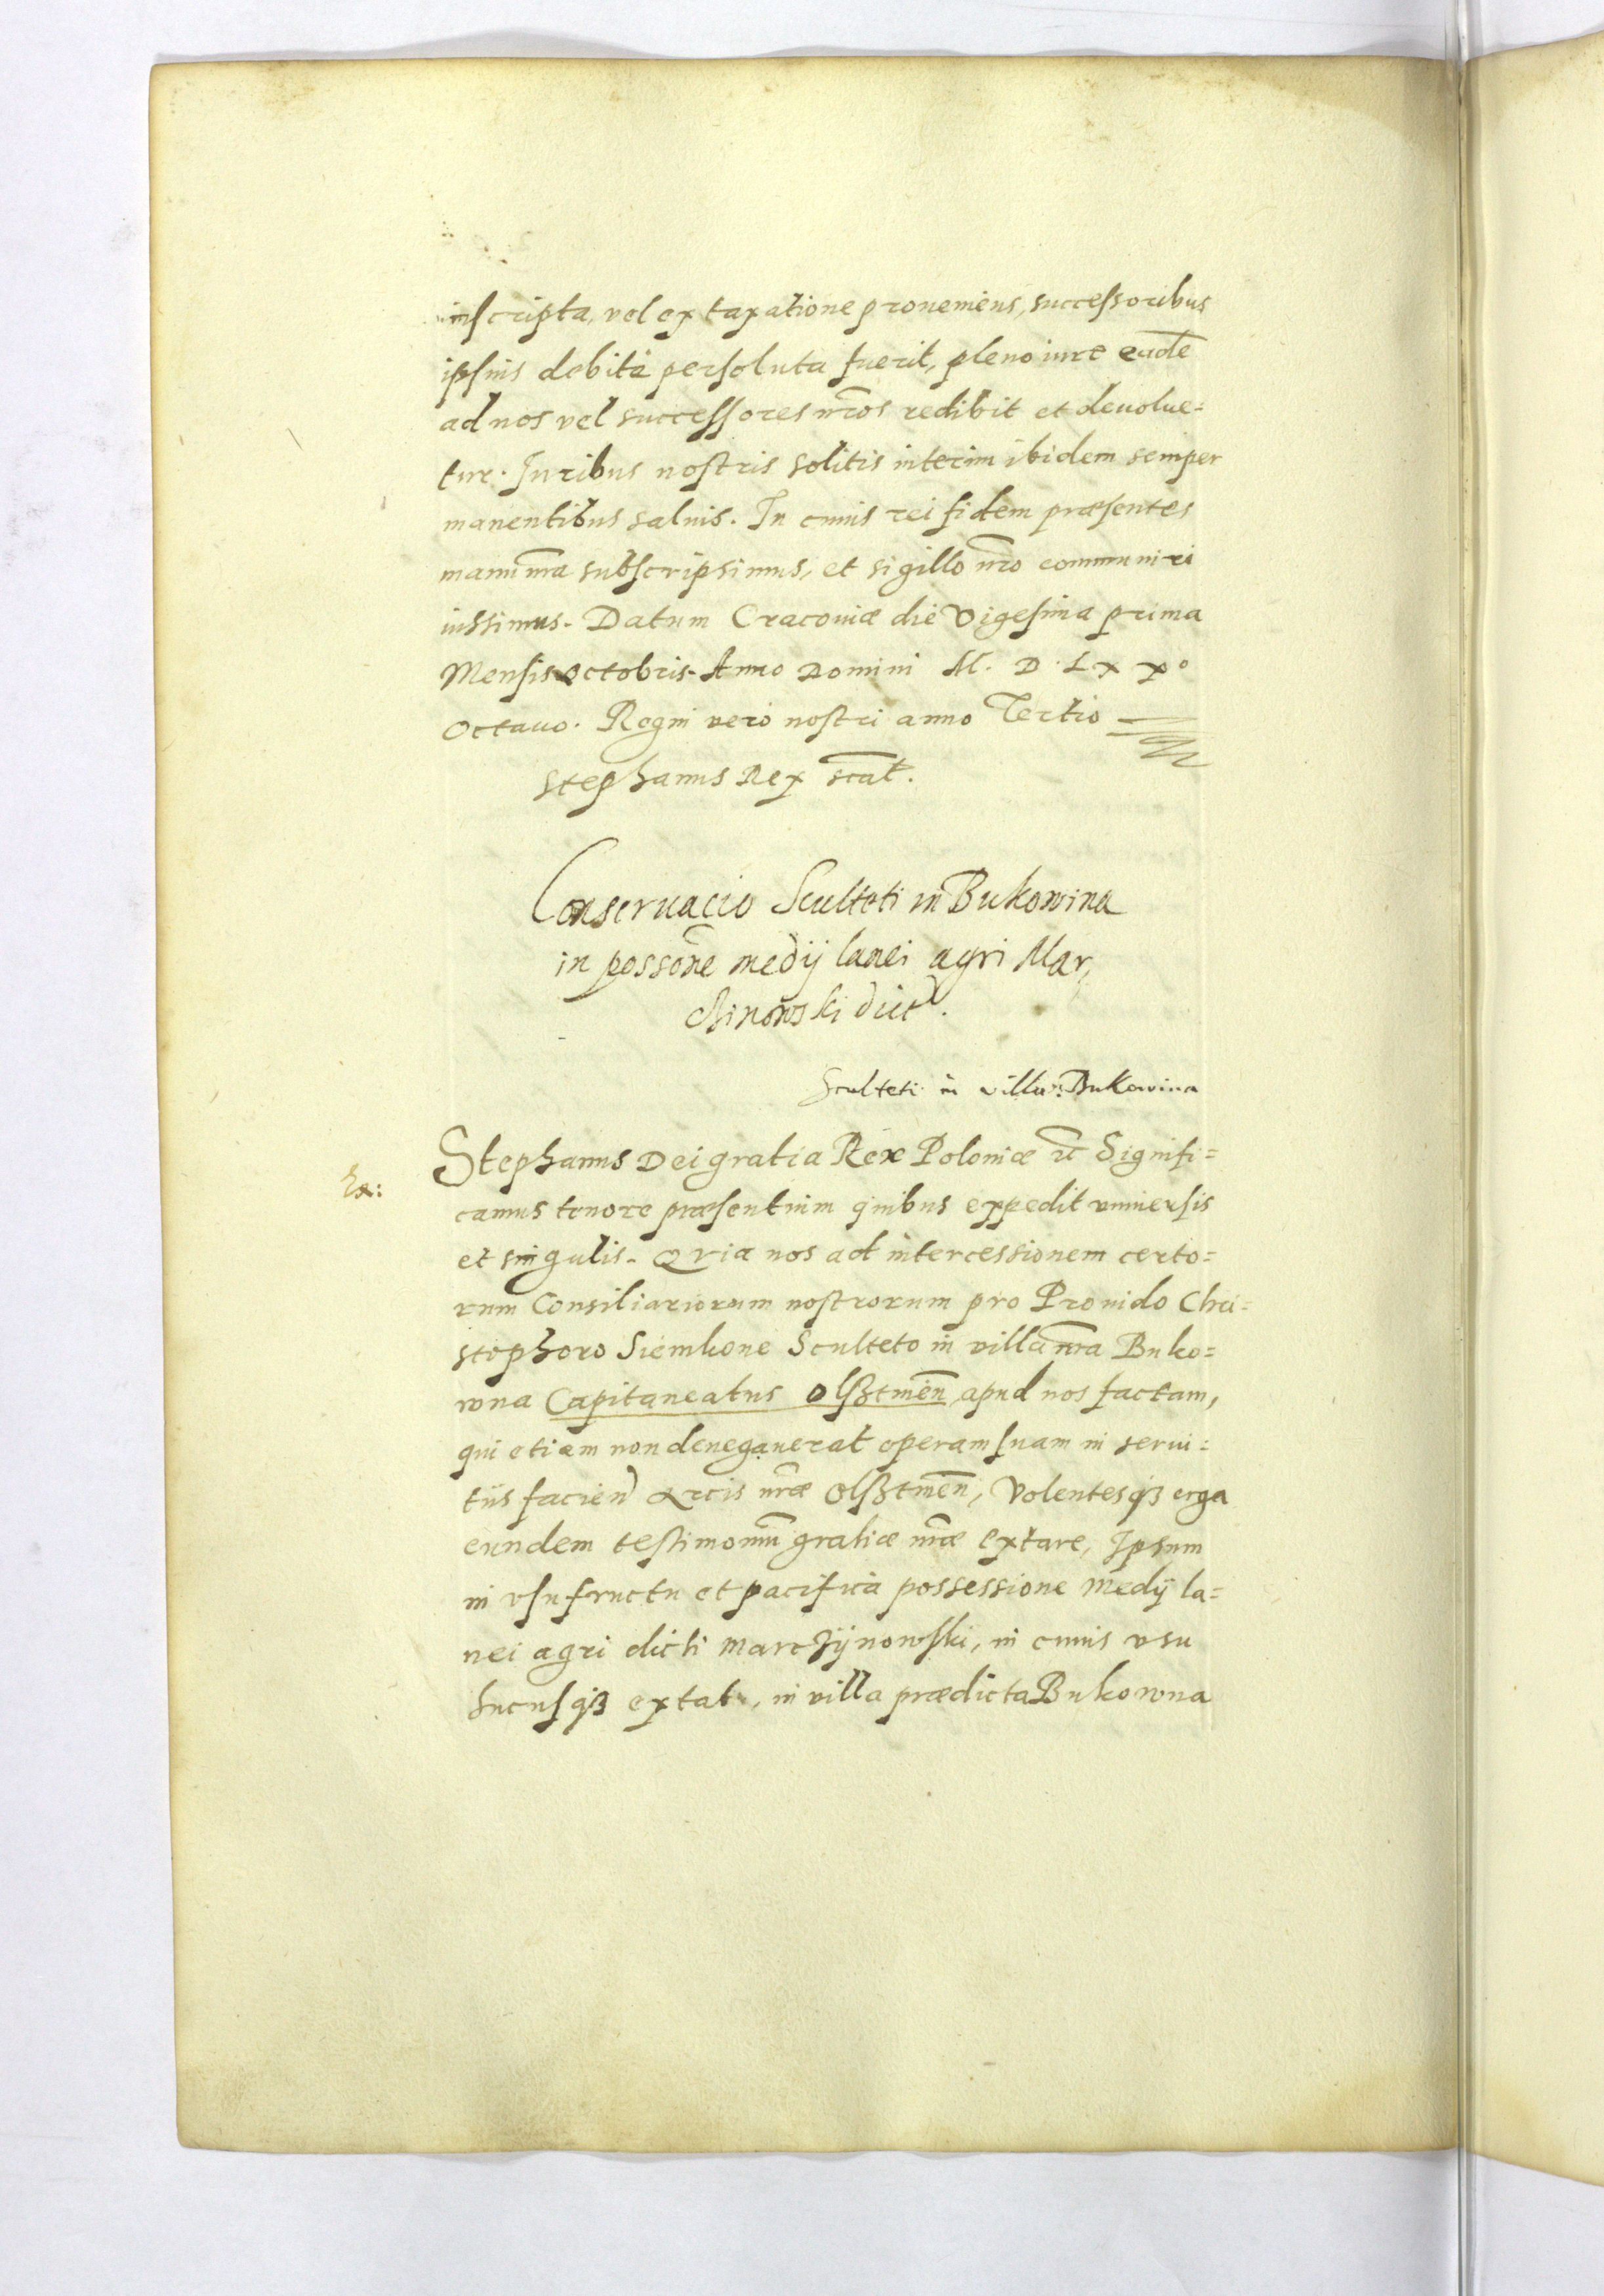 inscripta, vel ex taxatione proueniens, successoribus
ipsius debita persoluta fuerit, pleno iure eadē
ad nos vel successores nr̄os redibit et deuolue=
tur. Iuribus nostris solitis interim ibidem semper
manentibus saluis. In cuius rei fidem præsentes
manu nr̄a subscripsimus, et sigillo nr̄o communiri
iussimus. Datum Cracouiæ die Vigesima prima
Mensis Octobris. Anno Domini M. D. Lxxº
Octauo. Regni vero nostri anno Tertio
Stephanus Rex scāt.
Conseruacio Sculteti in Bukowina
in possōne medij lanei agri Mar,
chinowski dict.
Sculteti in villa Bukowina
Stephanus Dei gratia Rex Poloniæ etc Signifi=
camus tenore præsentium quibus expedit vniuersis
et singulis. Quia nos ad intercessionem certo=
rum Consiliariorum nostrorum pro Prouido Chri=
stophoro Siemkone Sculteto in villa nr̄a Buko=
wna Capitaneatus Olsztinēn apud nos factam,
qui etiam non denegauerat operam suam in serui=
tiis facien̄ Arcis nr̄æ Olsztinēn, Volentesqȝ erga
eundem testimoniū gratiæ nr̄æ extare, Ipsum
in vsufructu et pacifica possessione medij la=
nei agri dicti Marczijnowski, in cuius vsu
hucusqȝ extat, in villa prædicta Bukowna